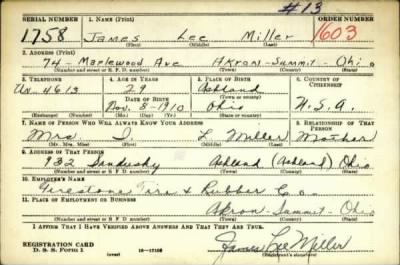 #13
SERIAL NUMBER 1. NAME (Print) ORDER NUMBER
1758 James Lee Miller 1603
(First) (Middle) (Last)
2. ADDRESS (Print)
74 - Maplewood Ave Akron - Summit - Ohio
(Number and street or R. F. D. number) (Town) (County) (State)
3. TELEPHONE 4. AGE IN YEARS 5. PLACE OF BIRTH 6. COUNTRY OF CITIZENSHIP
29 Ashland
4613 DATE OF BIRTH (Town or county)
Nov. 8 - 1910 Ohio U.S.A.
(Exchange) (Number) (Mo.) (Day) (Yr.) (State or country)
7. NAME OF PERSON WHO WILL ALWAYS KNOW YOUR ADDRESS 8. RELATIONSHIP OF THAT PERSON
Mrs. L Miller Mother
(Mr., Mrs., Miss) (First) (Middle) (Last)
9. ADDRESS OF THAT PERSON
932 Sandusky Ashland (Ashland) Ohio
(Number and street or R. F. D. number) (Town) (County) (State)
10. EMPLOYER'S NAME
Firestone Tire & Rubber Co.
11. PLACE OF EMPLOYMENT OR BUSINESS
Akron - Summit - Ohio
(Number and street or R. F. D. number) (Town) (County) (State)
I AFFIRM THAT I HAVE VERIFIED ABOVE ANSWERS AND THAT THEY ARE TRUE.
REGISTRATION CARD
D. S. S. Form 1 16-17105 James Lee Miller